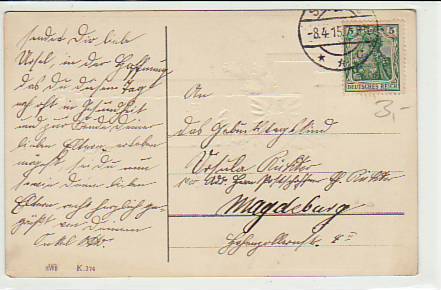 sendet Dir liebe
Ursel, in der Hoffnung
das Du diesen Tag
noch oft in Gesundheit
und zur Freude Deiner
lieben Eltern erleben
mögest, sei Du nun
sowie Deine lieben
Eltern recht herzlich ge-
grüßt von Deinem
Onkel Otto.
8.4.15
5
DEUTSCHES REICH
3,-
An
das Geburtstagskind
Ursula Richter
Adr. Herrn Richter
Magdeburg
Hohenzollernstr.
K. 314